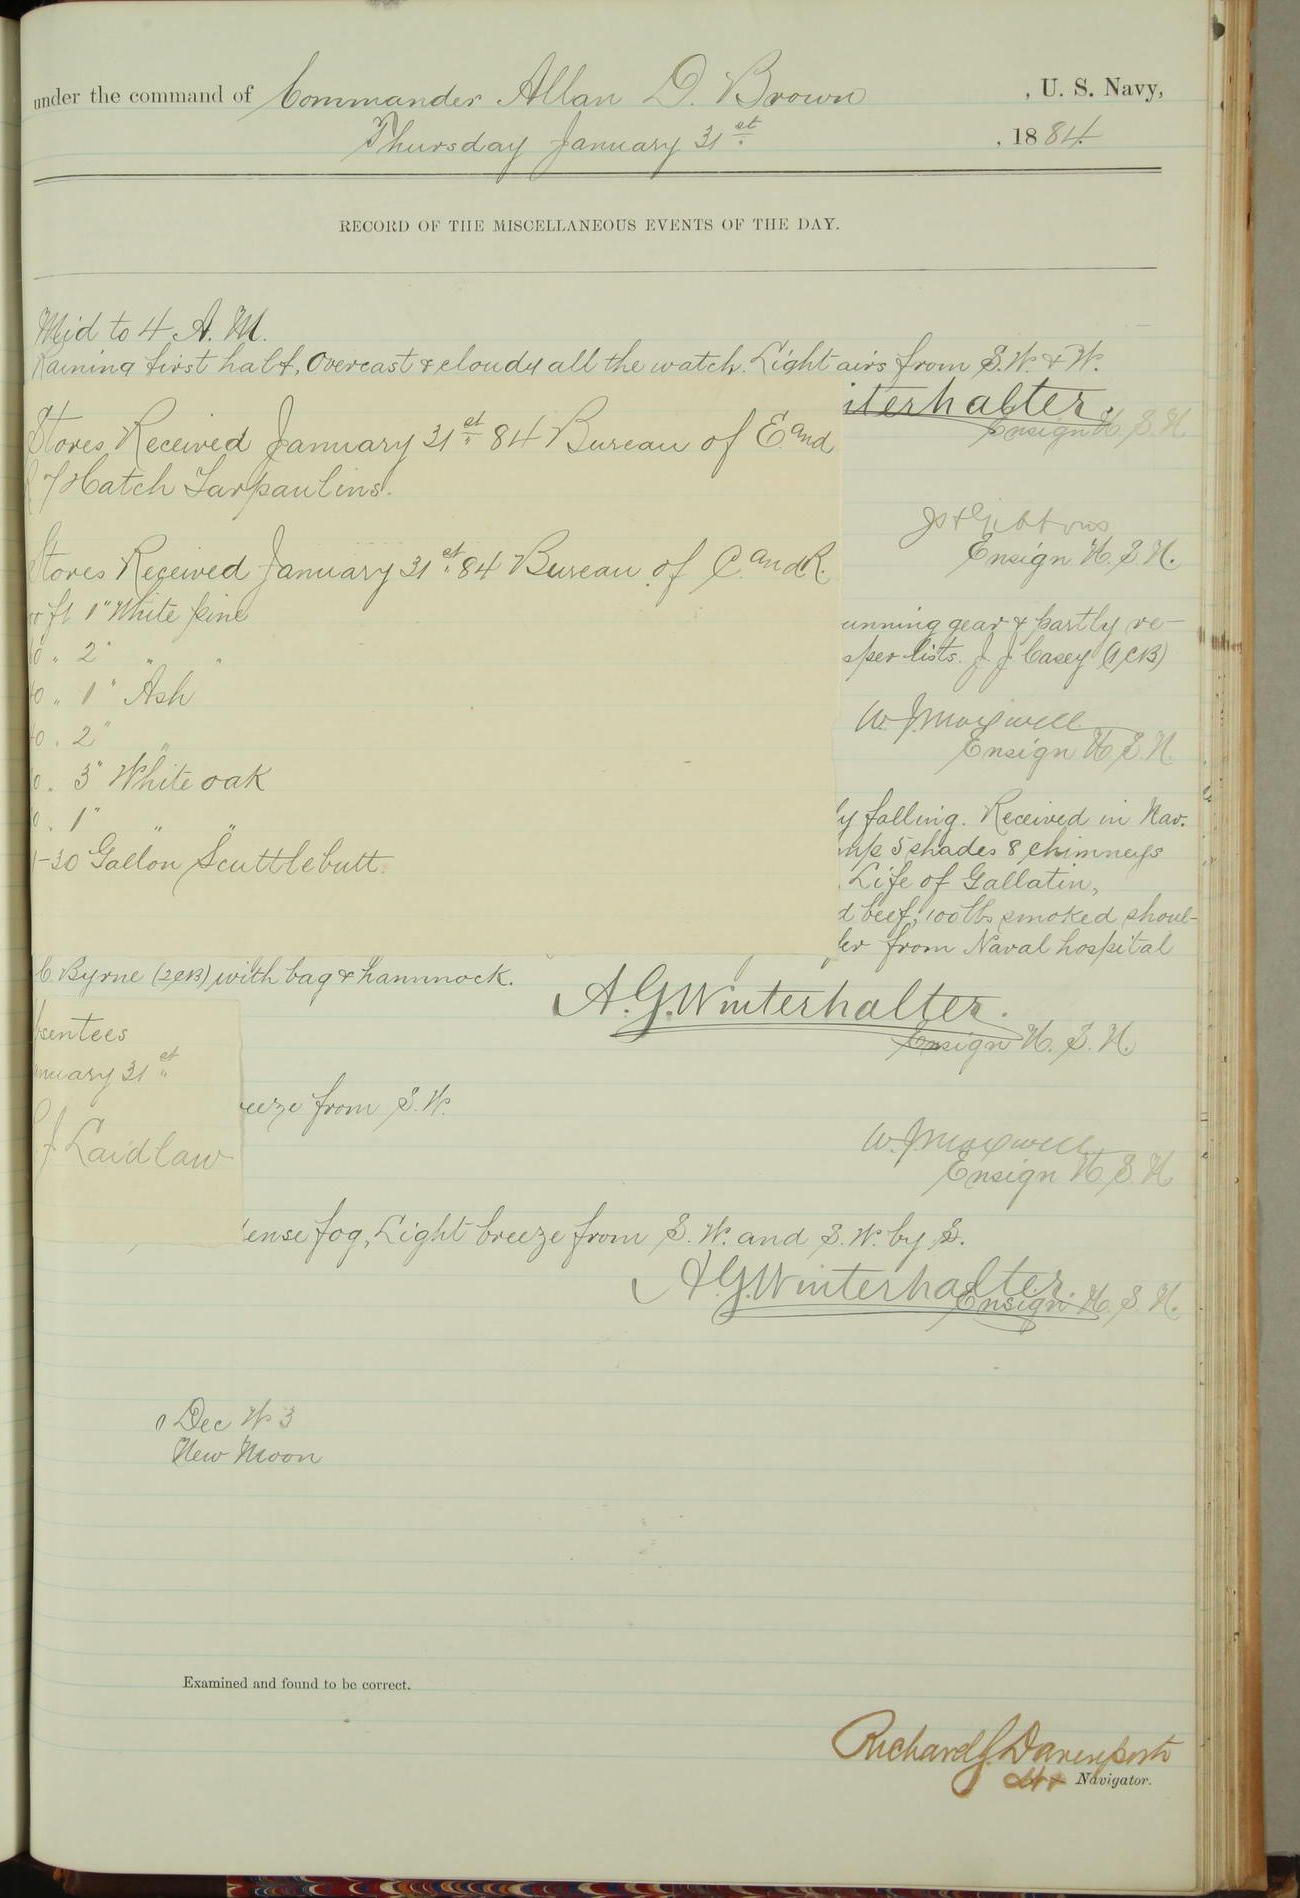 under the command of Commander Allan D. Brown, U. S. Navy,
Thursday January 31st, 1884.
RECORD OF THE MISCELLANEOUS EVENTS OF THE DAY.
Mid to 4 A. M.
Raining first half, Overcast & cloudy all the watch. Light airs from S.W. & W.
iterhalter.
Ensign U. S. N.
Stores Received January 31st 84 Bureau of E and
R 7 Hatch Tarpaulins.
Gibbons
Ensign U. S. N.
Stores Received January 31st 84 Bureau of C and R.
ft 1" White pine
0 " 2" " "
0 " 1" Ash
0 " 2" "
0 " 3" White oak
0 " 1" " "
1-30 Gallon Scuttlebutt.
unning gear & partly re-
per lists. J. J. Casey (1CB)
W. J. Maxwell
Ensign U. S. N.
ly falling. Received in Nav.
mp 5 shades 8 chimneys
Life of Gallatin,
d beef, 100 lbs smoked shoul-
er from Naval hospital
C. Byrne (2CB) with bag & hammock.
A. G. Winterhalter.
Ensign U. S. N.
sentees
nuary 31st
J Laidlaw
eeze from S. W.
W. J. Maxwell
Ensign U. S. N
ense fog, Light breeze from S. W. and S. W. by S.
A. G. Winterhalter.
Ensign U. S. N.
Dec W 3
New Moon
Examined and found to be correct.
Richard G. Davenport
Lt Navigator.